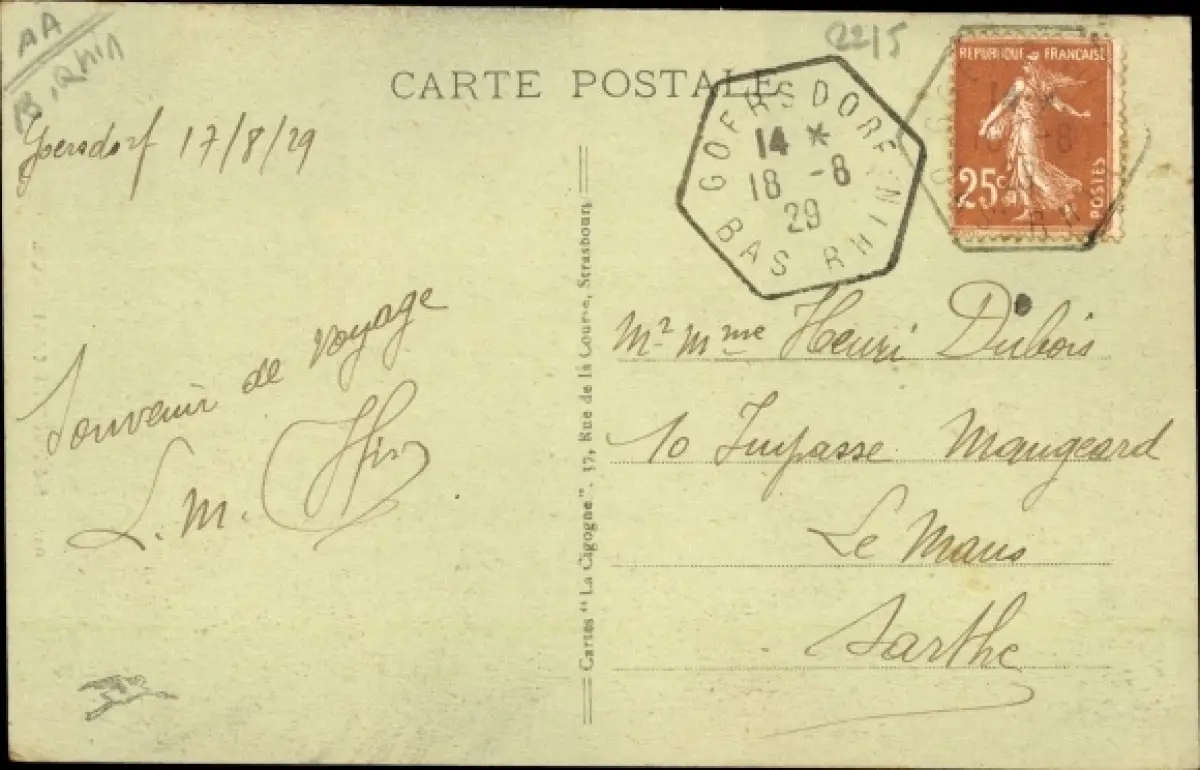 AA
B. Rhin
2215
CARTE POSTALE
Goersdorf 17/8/29
GOERSDORF
14 *
18 -8
29
BAS RHIN
REPUBLIQUE FRANÇAISE
25c
POSTES
Souvenir de voyage
L. M.
Cartes "La Cigogne", 37, Rue de la Course, Strasbourg
Mr Mme Henri Dubois
10 Impasse Maugeard
Le Mans
Sarthe